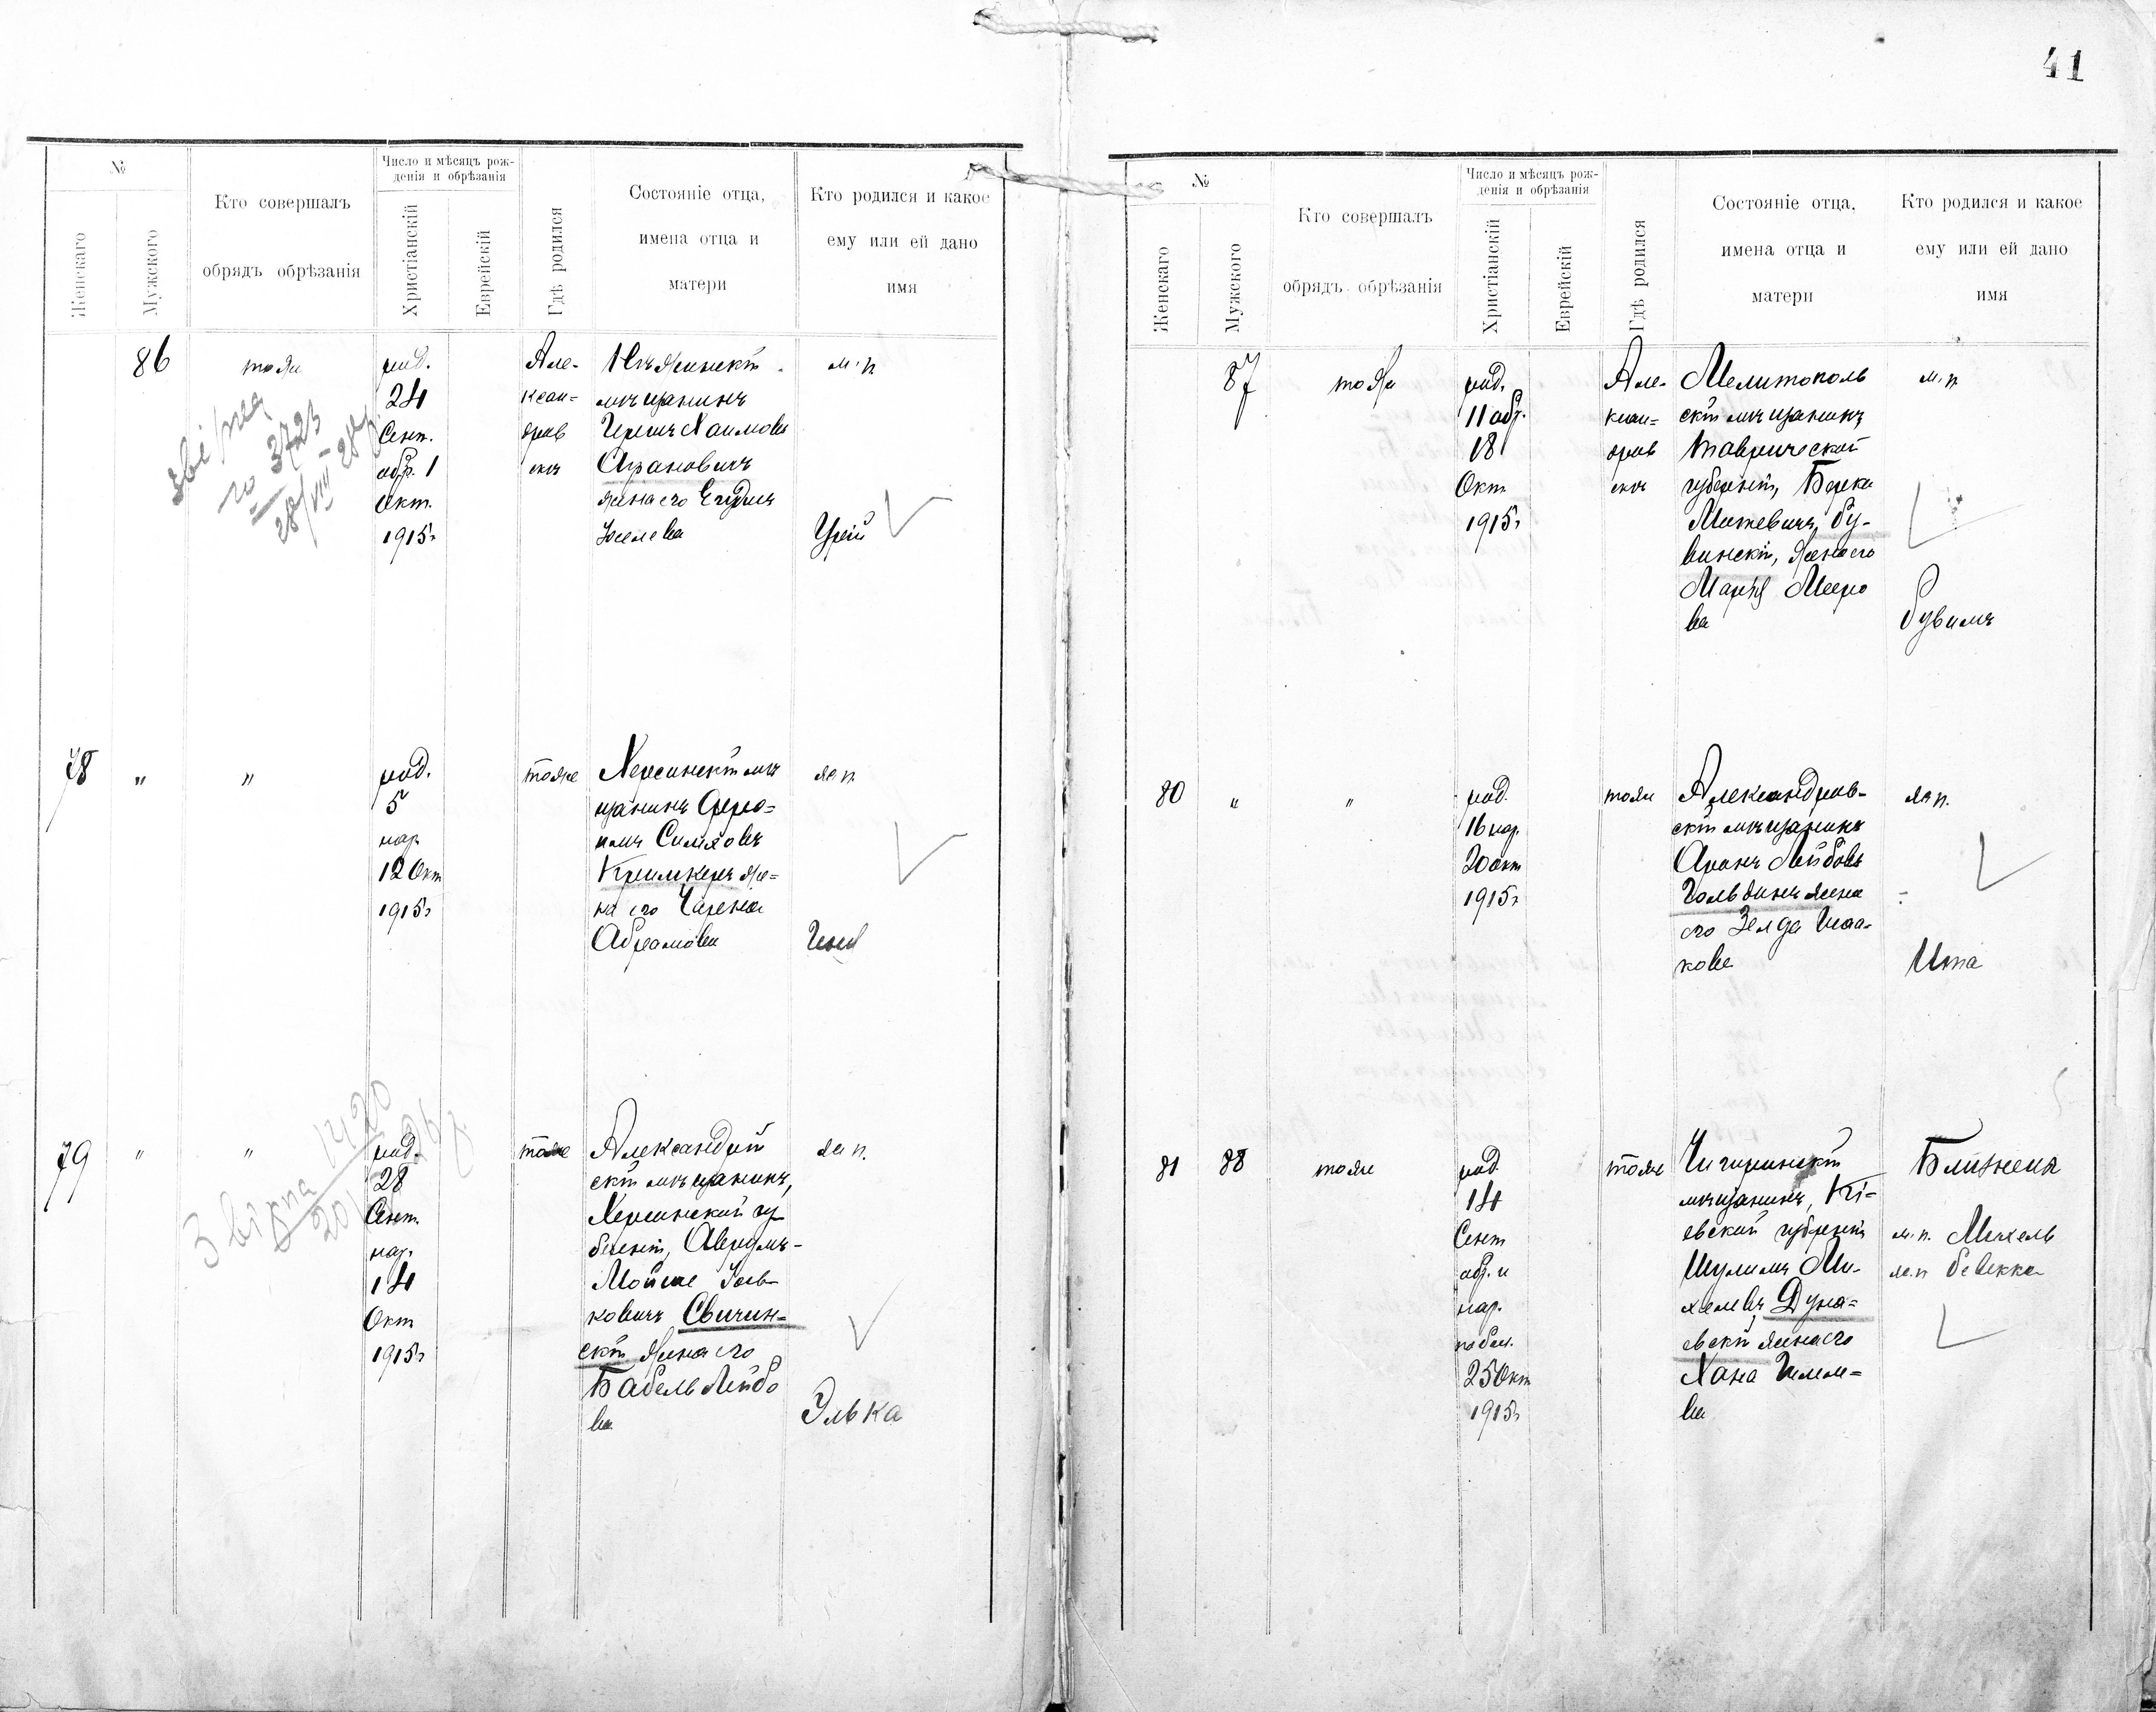 41
№
Женскаго
Мужского
Кто совершалъ
обрядъ обрѣзанія
Число и мѣсяцъ рож-
денія и обрѣзанія
Христіанскій
Еврейскій
Гдѣ родился
Состояніе отца,
имена отца и
матери
Кто родился и какое
ему или ей дано
имя
86
тоже
род.
24
Сент.
обр. 1
Окт.
1915г
Але-
ксан-
дров
скъ
мѣщанинъ
Аранович
жена его
м. п
звірка
3723
78
"
"
род.
5
нар
12 Окт
1915г
тоже
Херсонскій мѣ
щанинъ Фрои-
имъ Симховъ
Кримкеръ же-
на его
Абрамова
ж п.
79
"
"
род.
28
Сент.
нар.
14
Окт
1915г
тоже
Александрій
скій мѣщанинъ,
Херсонской гу
берніи, Аврумъ-
Мойше
ковичъ Свичин-
скій жена его
Бабель Лейбо
ва
ж п.
Элька
Звірка
1420
№
Женскаго
Мужского
Кто совершалъ
обрядъ обрѣзанія
Число и мѣсяцъ рож-
денія и обрѣзанія
Христіанскій
Еврейскій
Гдѣ родился
Состояніе отца,
имена отца и
матери
Кто родился и какое
ему или ей дано
имя
87
тоже
род.
11 обр.
18
Окт
1915г
Але-
ксан-
дров
скъ
Мелитополь
скій мѣщанинъ
Таврической
губерніи, Берка
Ру-
винскій, жена его
Марія Мееро
ва
м. п
Рувимъ
80
"
"
род.
16 нар.
20 окт
1915г
тоже
Александров-
скій мѣщанинъ
Аронъ Лейбовъ
Гольдинъ жена
его Зелда Исаа-
кова
ж п.
Ита
81
88
тоже
род
14
Сент
обр. и
нар.
25 Окт
1915г
тоже
Чигиринскій
мѣщанинъ, Кі-
евской губерніи
Шулимъ Ми-
хелевъ, Дуна-
евскій жена его
Хана
ва
Близнецы
м. п. Михель
ж. п Ревекка